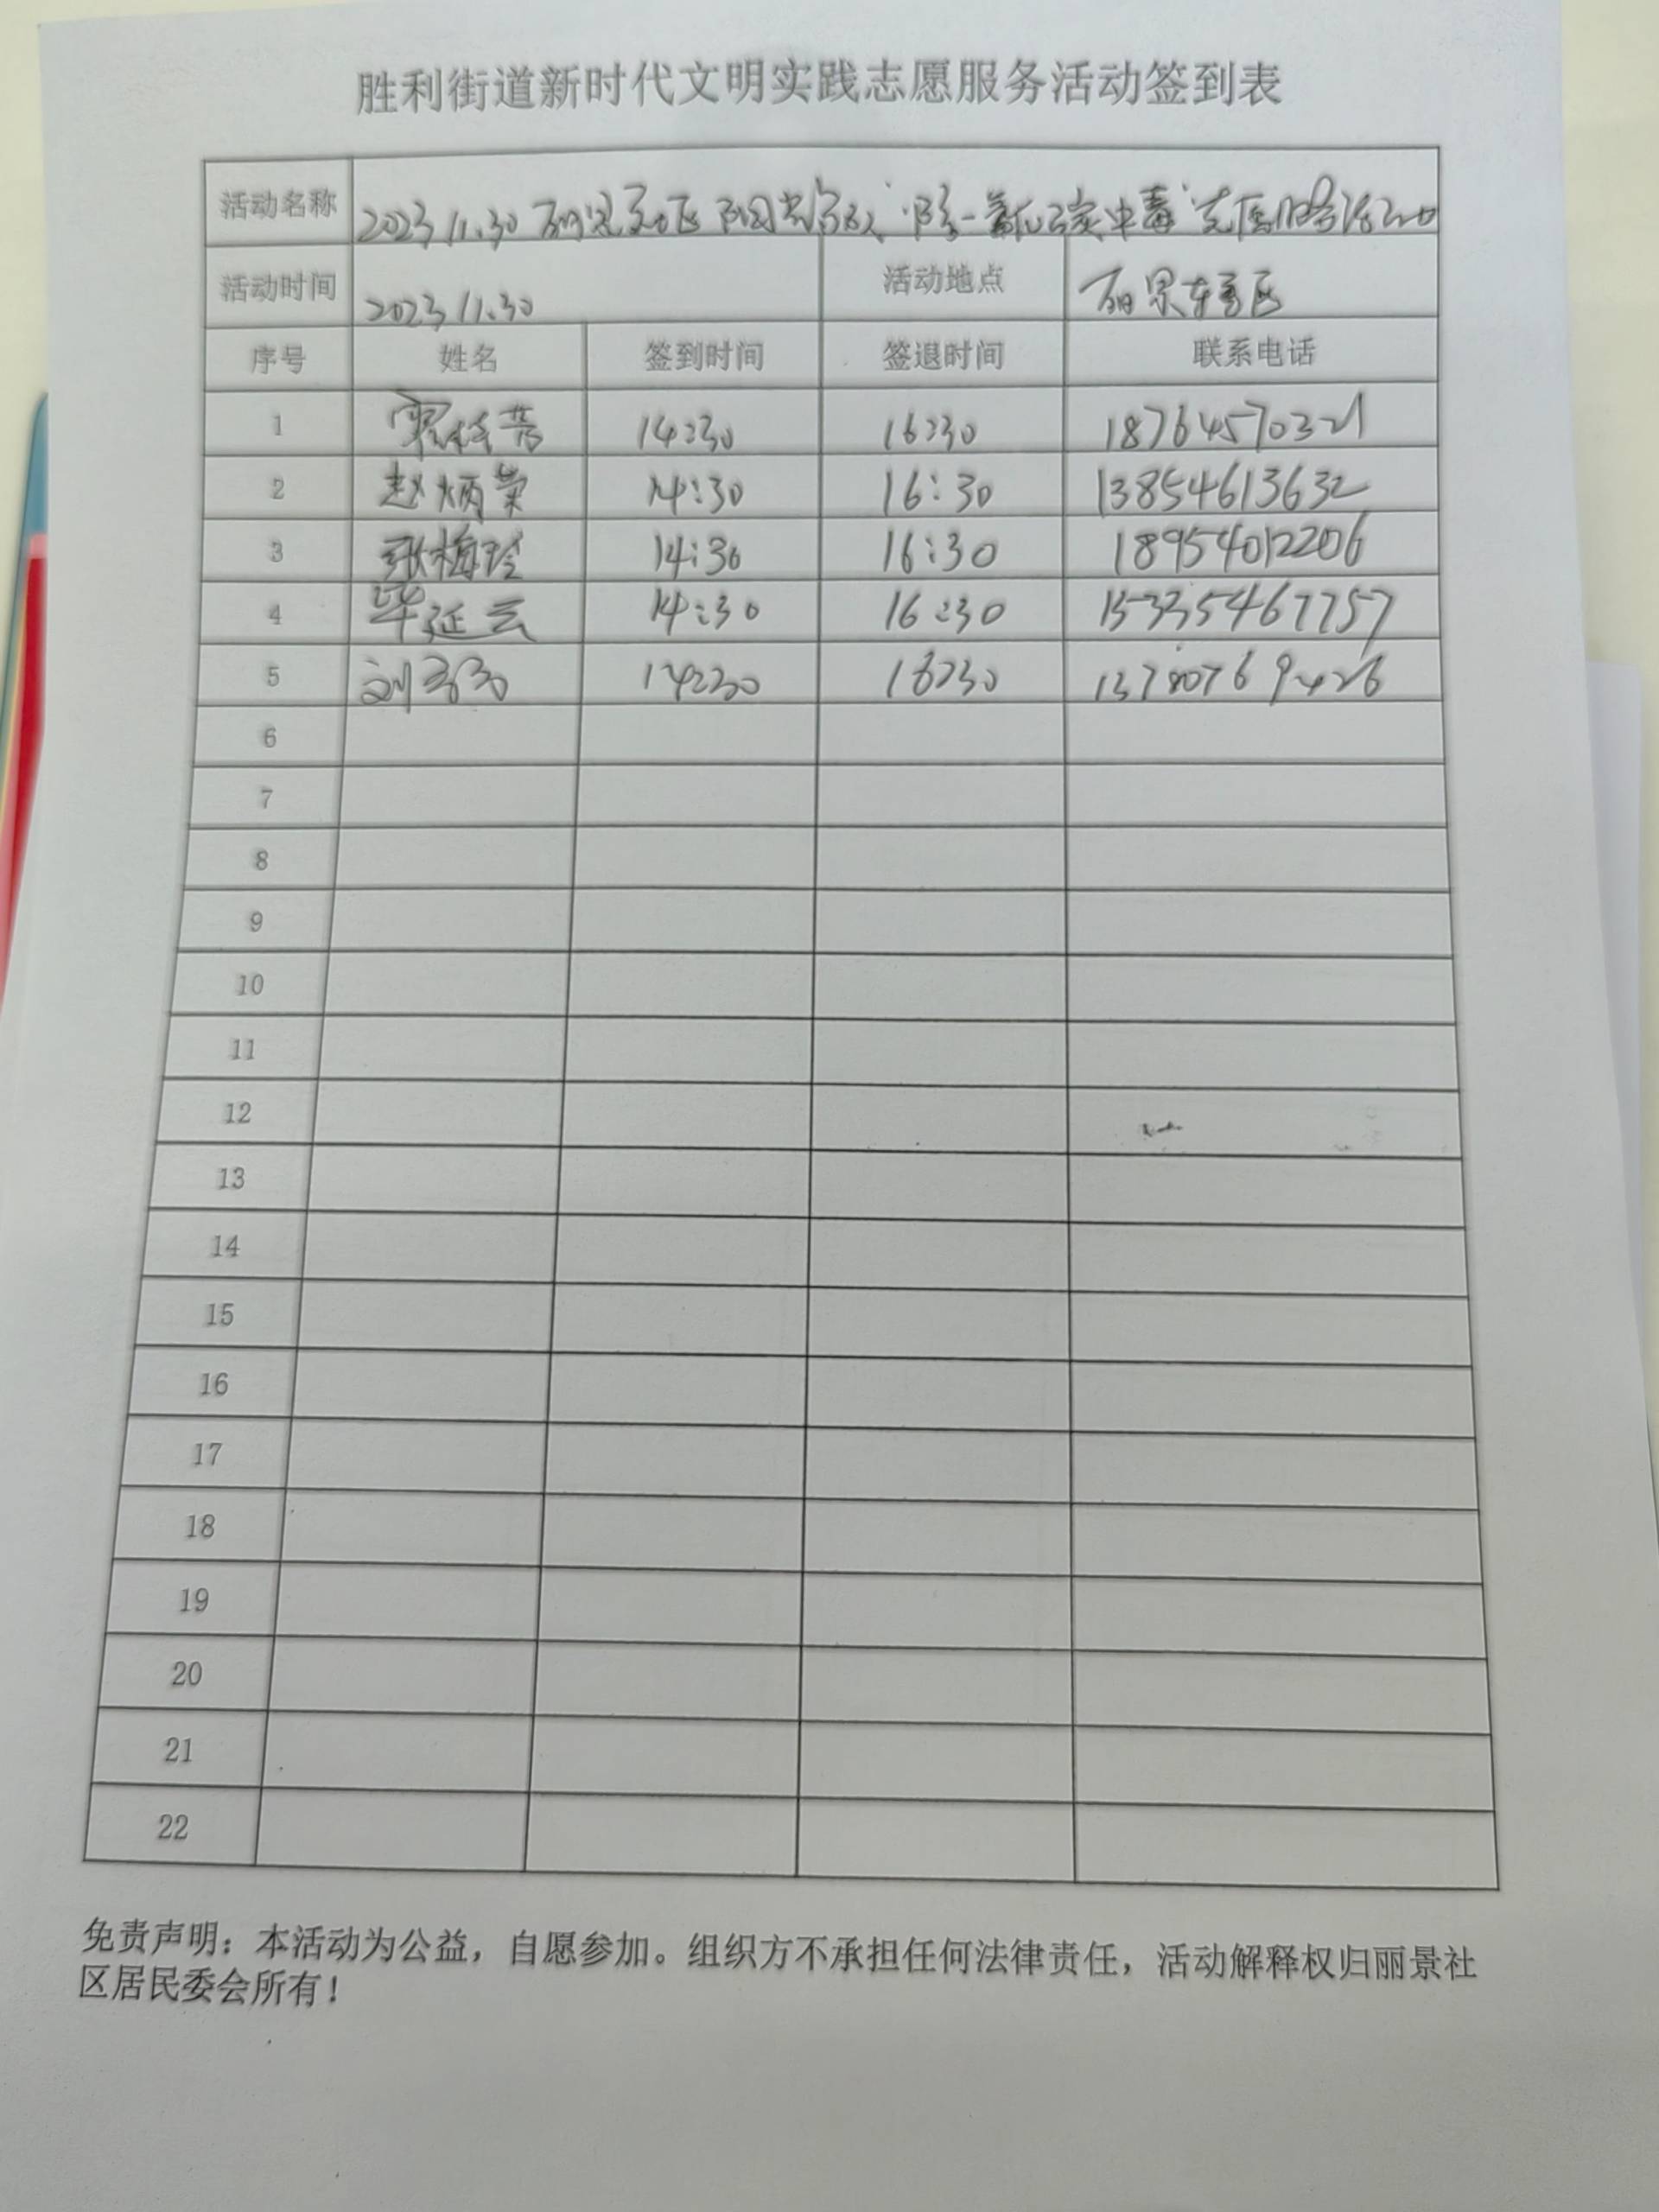 胜利街道新时代文明实践志愿服务活动签到表
活动名称 2023.11.30 丽景社区 阳光 "防一氧化碳中毒"志愿服务活动
活动时间 2023.11.30 活动地点 丽景东区
序号 姓名 签到时间 签退时间 联系电话
1 14:30 16:30 18764570321
2 赵炳荣 14:30 16:30 13854613632
3 张梅玲 14:30 16:30 18954012206
4 毕延云 14:30 16:30 15335467757
5 刘 14:30 16:30
6
7
8
9
10
11
12
13
14
15
16
17
18
19
20
21
22
免责声明：本活动为公益，自愿参加。组织方不承担任何法律责任，活动解释权归丽景社
区居民委会所有！